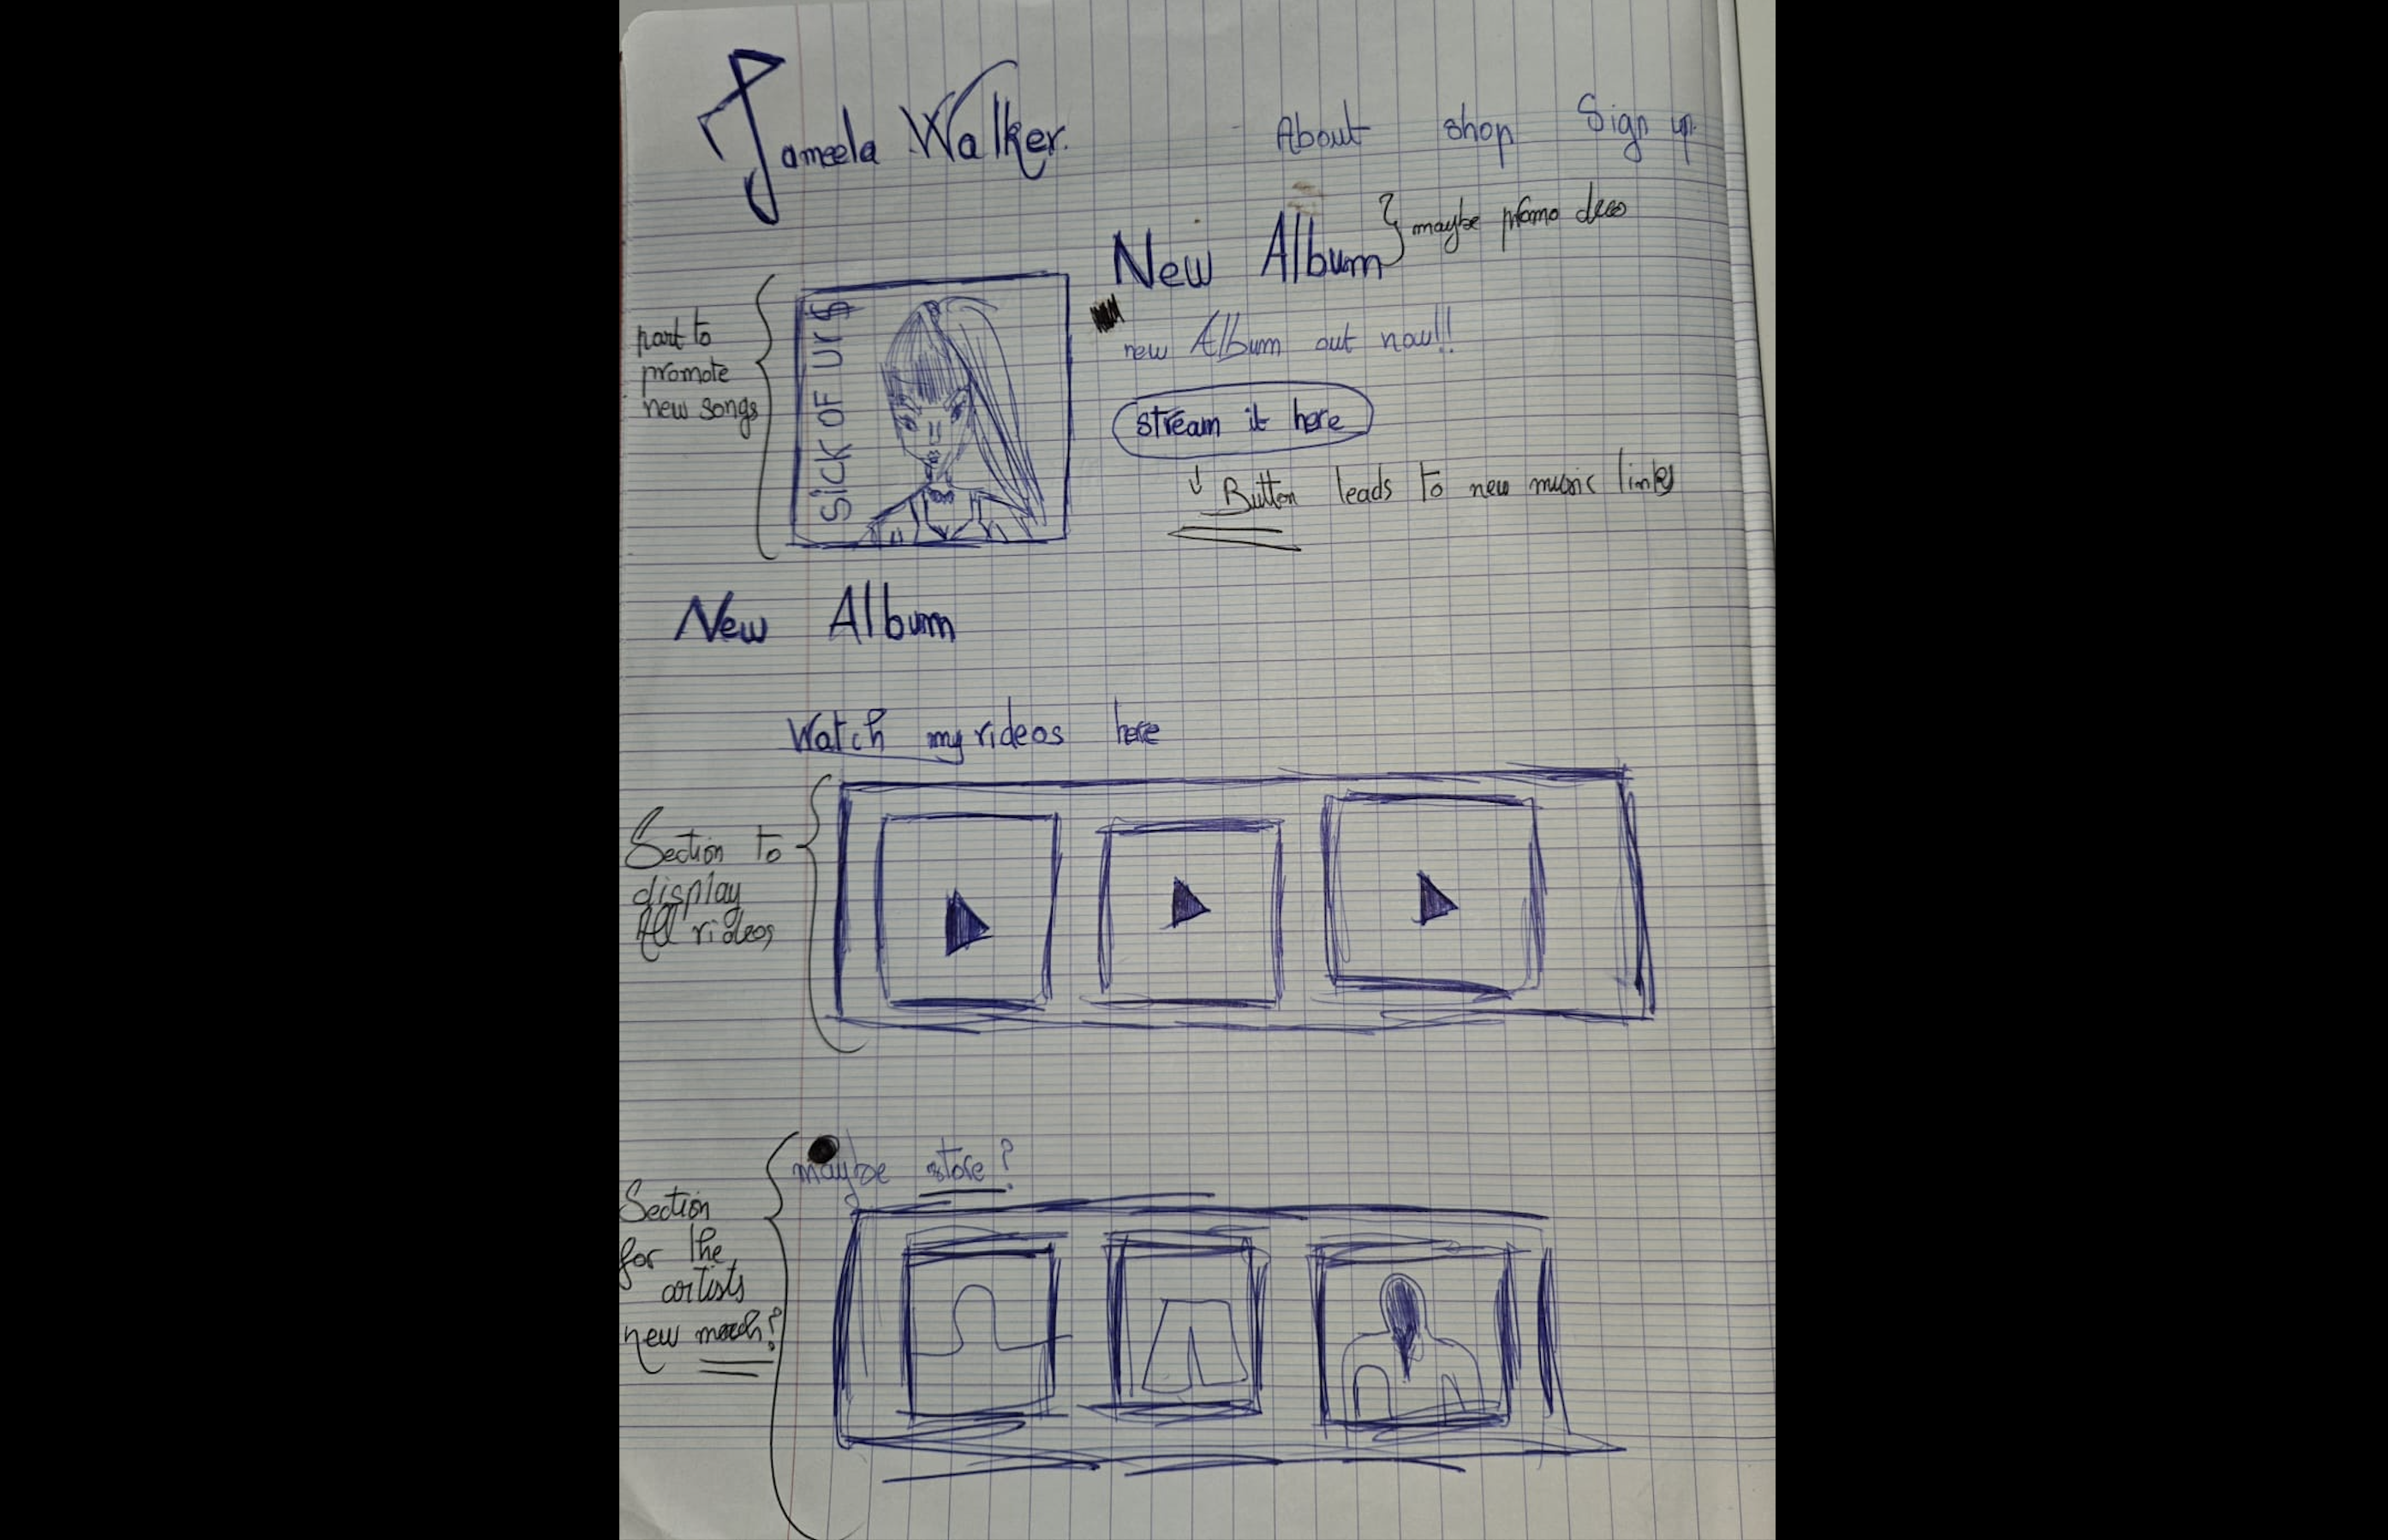 Jameela Walker.
About shop Sign up.
New Album
maybe promo deco
SICK OF UR $
part to
promote
new songs
new Album out now!!
stream it here
↓ Button leads to new music links
New Album
Watch my videos here
Section to
display
All videos
maybe store?
Section
for the
artists
new merch?